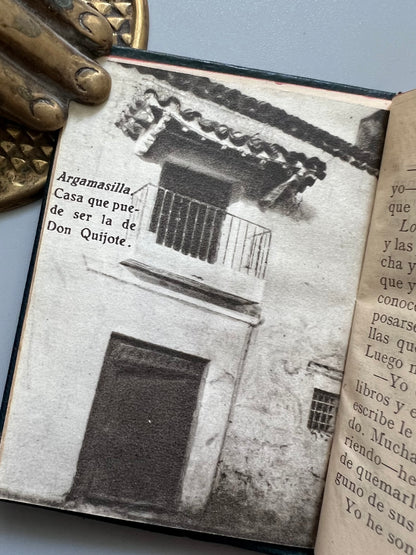 Argamasilla.
Casa que pue-
de ser la de
Don Quijote.
yo
que
Lo
y las
cha y
que y
conoc
posarse
llas que
Luego m
—Yo
libros y e
escribe le
do. Mucha
riendo—he
de quemarl
guno de sus
Yo he son